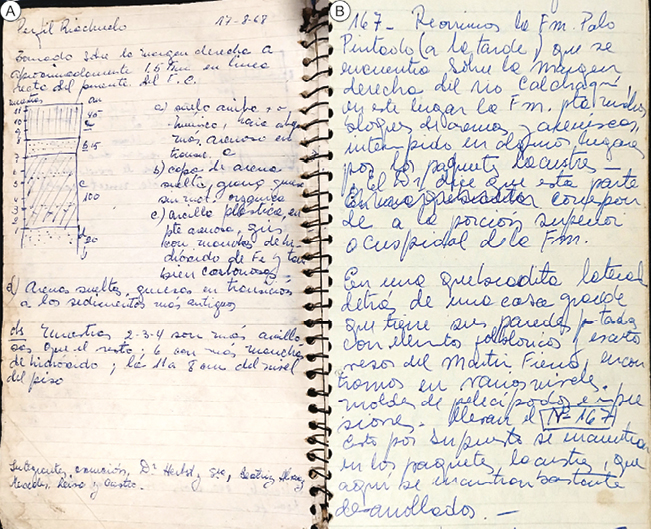 A
Perfil Riachuelo 17-8-68
Tomado sobre la margen derecha a
aproximadamente 1,5 Km en línea
recta del puente del F.C.
muestras
cm
40
15
c
100
20
a) suelo
húmico, hacia abajo
más arenoso en
trans. a
b) capa de arena
suelta, gruesa, gris
sin mat. orgánica
c) arcilla plástica, en
pte arenosa, gris
con manchas de hi-
dróxido de Fe y tam
bien carbonosas
d) Arenas sueltas, gruesas en transición
a los sedimentos más antiguos
Muestras 2-3-4 son más arcillo
sas que el resto; 6 con más manchas
de hidróxido; la 11 a 8 cm del nivel
del piso
Integrantes comisión, Dr Herbst,
Mercedes, Luisa y
B
167- Recorrimos la Fm. Palo
Pintado (a la tarde) que se
encuentra sobre la margen
derecha del río Calchaquí,
en este lugar la Fm. pta
de arenas y areniscas,
interrumpido en algunos lugares
por los paquetes lacustres -
el Dr. dice que esta parte
correspon
de a la porción superior
o cuspidal de la Fm.
En una quebradita lateral
detrás de una casa grande
que tiene sus paredes pintadas
con elementos folklóricos y escrito
versos del Martín Fierro, encon
tramos en varios niveles
moldes de pelecípodos e impre
siones. Llevan el Nº 167
Esto por supuesto se encuentran
en los paquetes lacustres, que
aquí se encuentran bastante
desarrollados. -